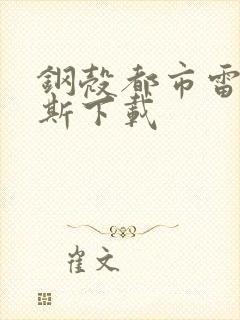 鋼殼都市雷
斯下載
崔文